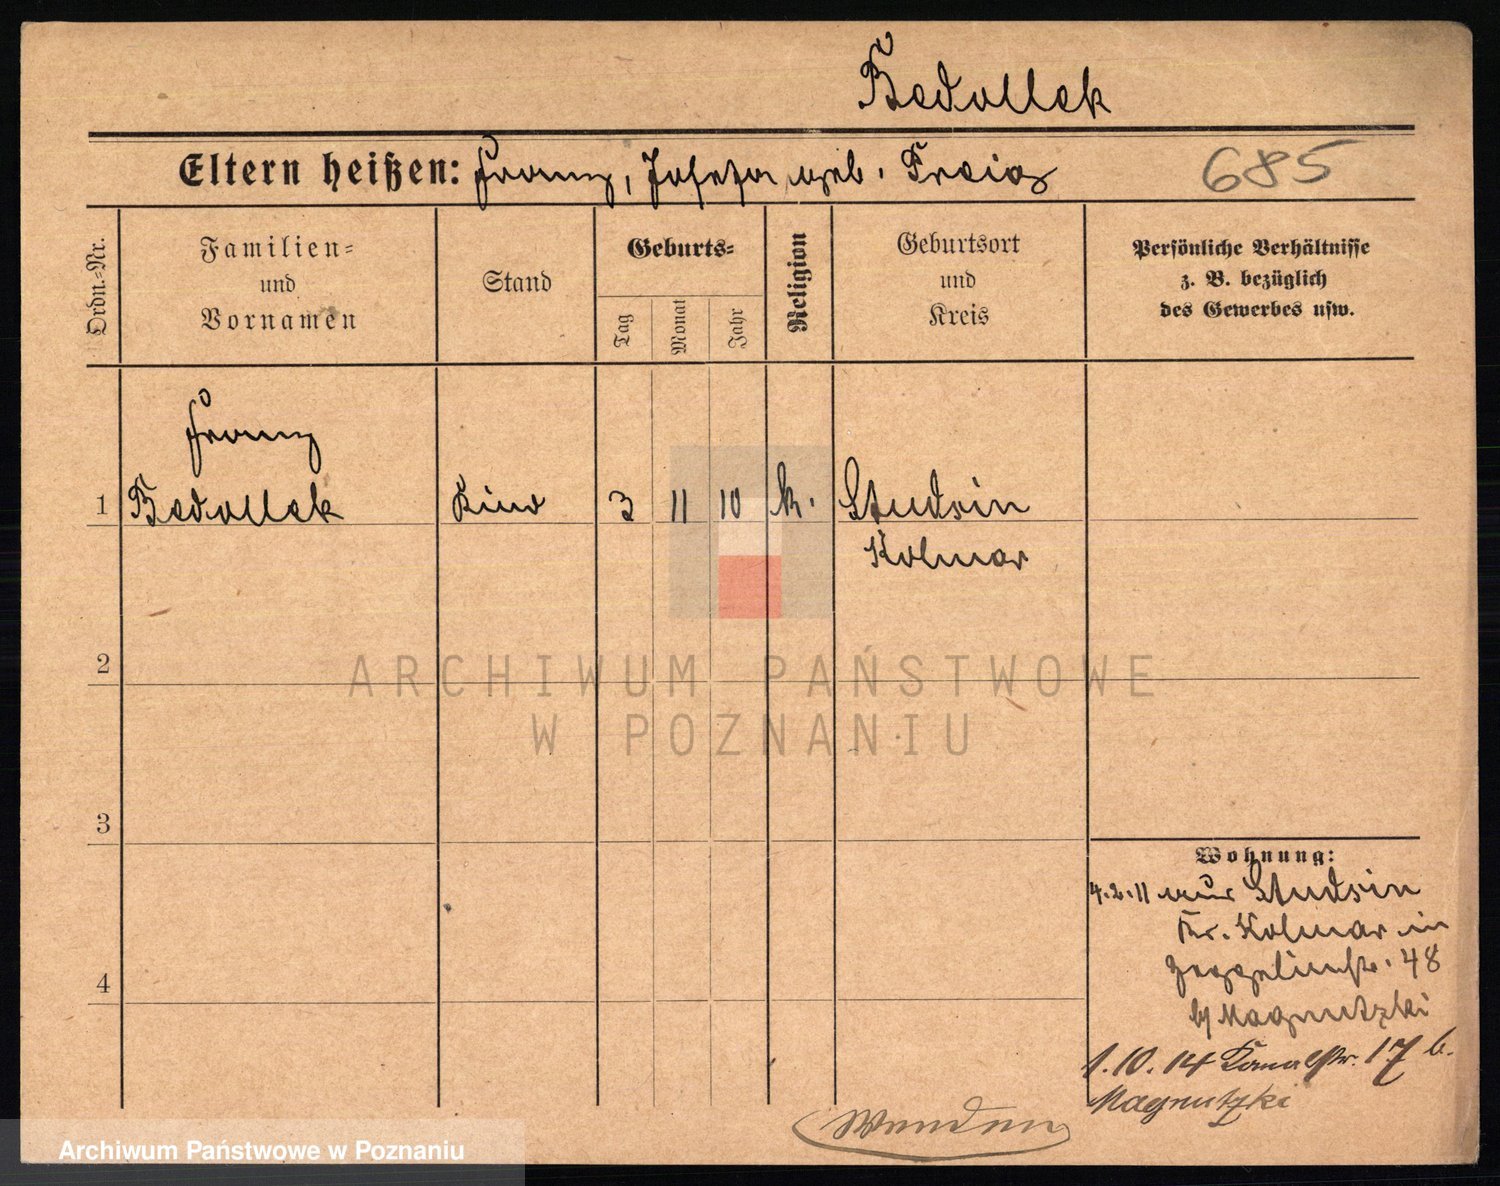 Badollek
Eltern heißen: Franz, Josefa geb.
685
Ordn.-Nr.
Familien-
und
Vornamen
Stand
Geburts-
Tag
Monat
Jahr
Religion
Geburtsort
und
Kreis
Persönliche Verhältnisse
z. B. bezüglich
des Gewerbes usw.
Franz
1 Badollek Kind 3 11 10 k. Studsin
Kolmar
2
3
4
Wohnung:
4.2.11 aus Studsin
Kr. Kolmar in
Zeppelinstr. 48
b/ Magnutzki
1.10.14 Kanalstr. 17 b.
Magnutzki
Wenden
ARCHIWUM PAŃSTWOWE
W POZNANIU
Archiwum Państwowe w Poznaniu